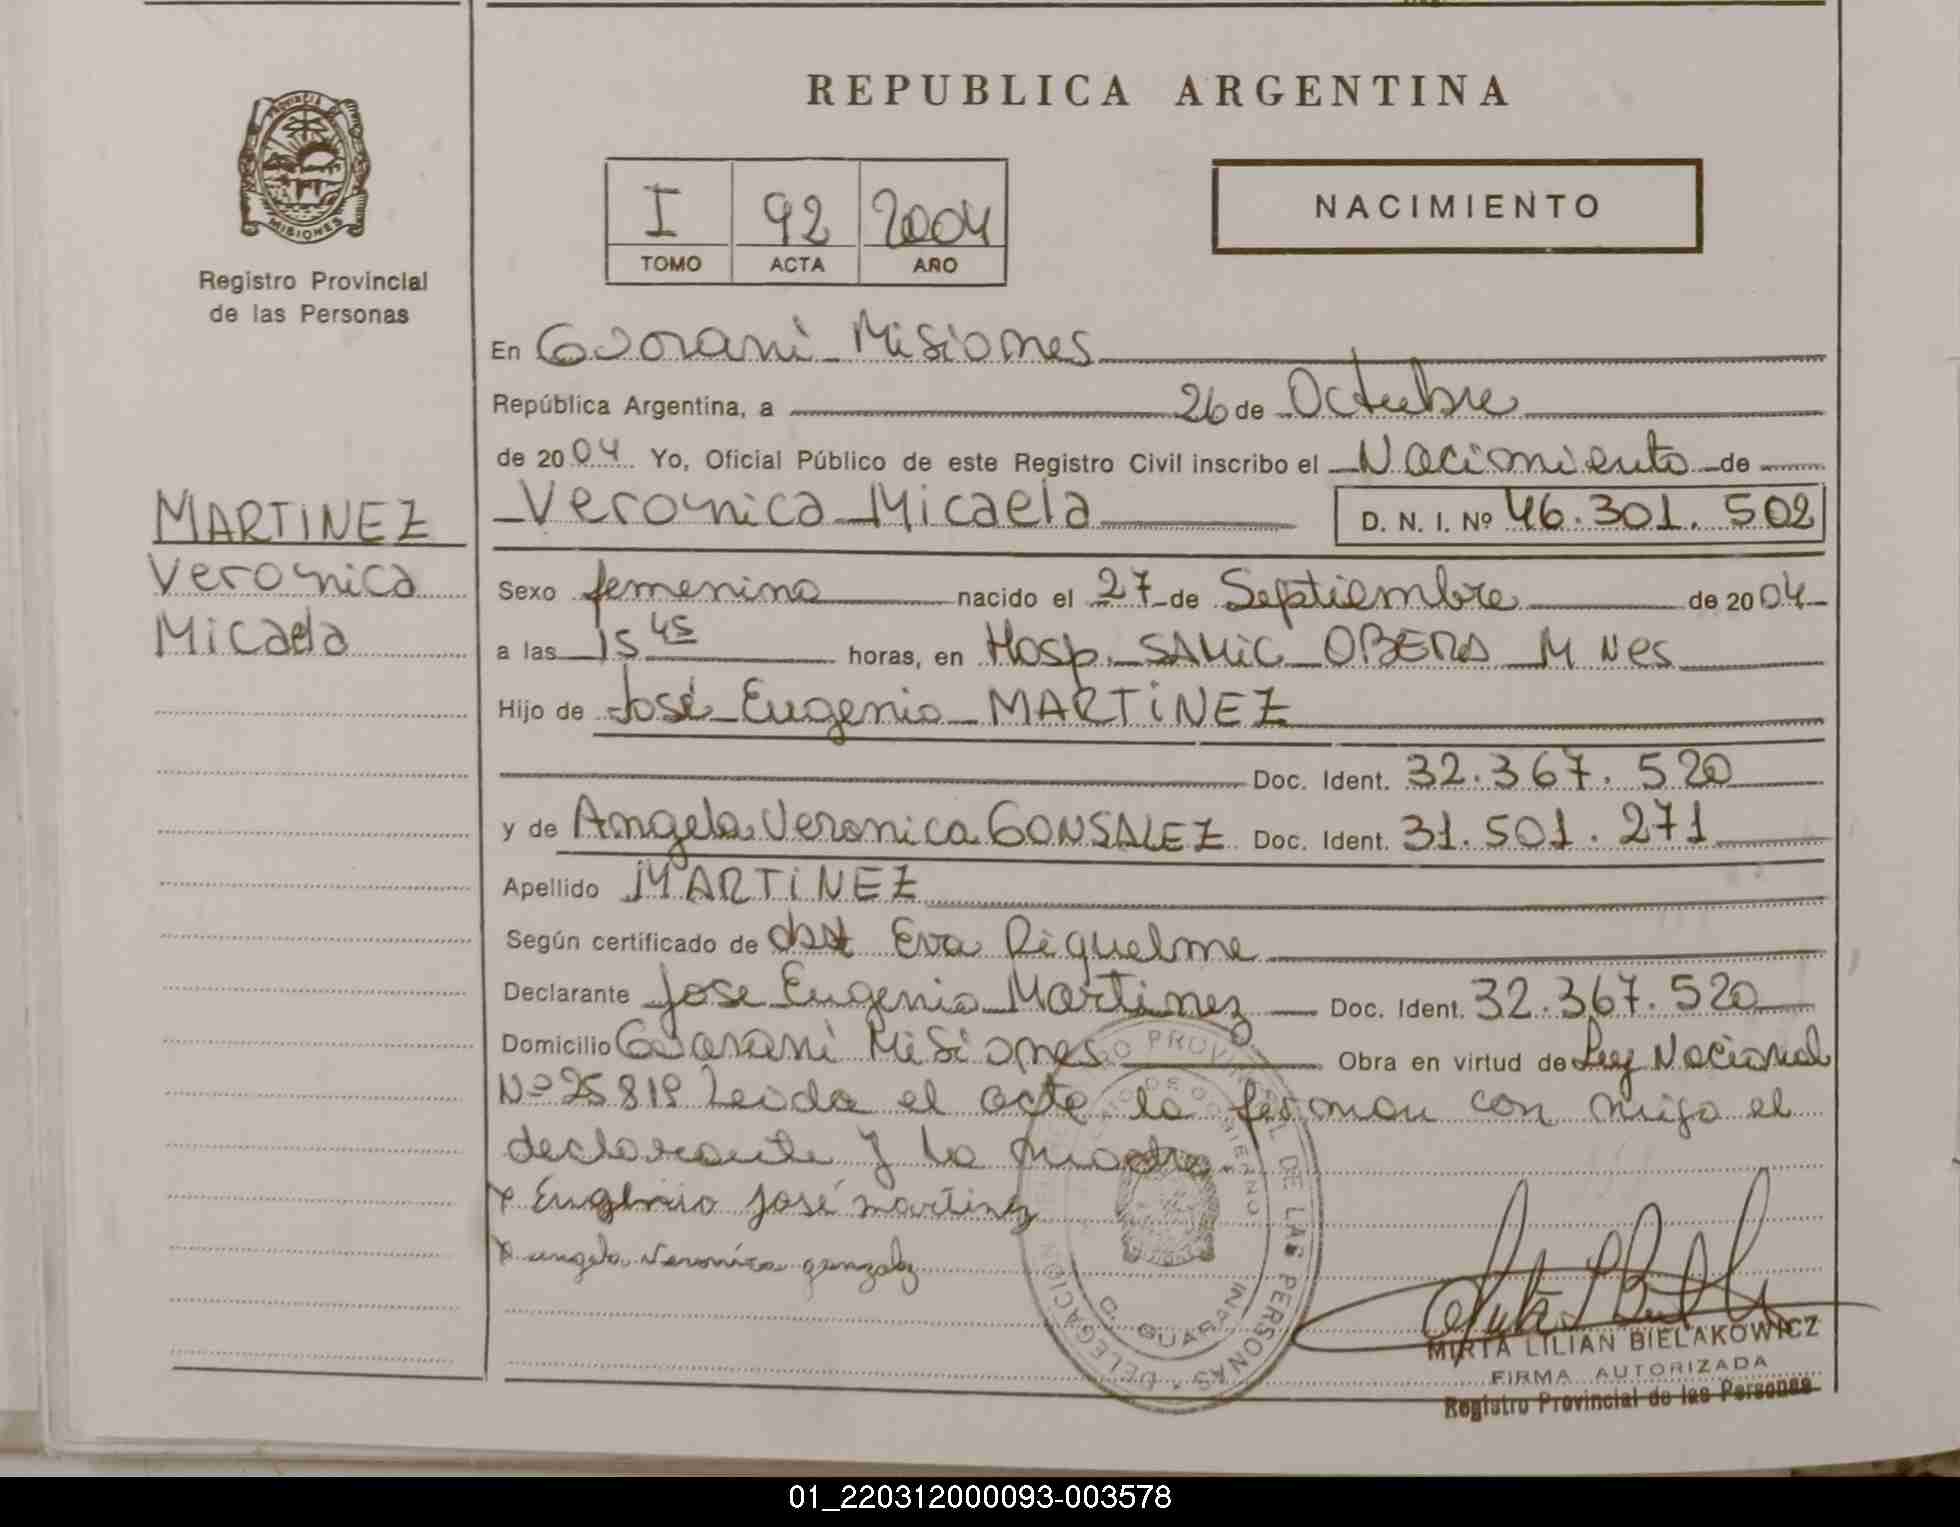 REPUBLICA ARGENTINA
PROVINCIA DE MISIONES
Registro Provincial
de las Personas
I 92 2004
TOMO ACTA AÑO
NACIMIENTO
En Guarani Misiones
República Argentina, a 26 de Octubre
de 2004 Yo, Oficial Público de este Registro Civil inscribo el Nacimiento de
Veronica Micaela D. N. I. Nº 46.301.502
MARTINEZ
Veronica
Micaela
Sexo femenino nacido el 27 de Septiembre de 2004
a las 15 45 horas, en Hosp. SAMIC OBERA M Nes
Hijo de José Eugenio MARTINEZ
Doc. Ident. 32.367.520
y de Angela Veronica GONSALEZ Doc. Ident. 31.501.271
Apellido MARTINEZ
Según certificado de obst Eva Riquelme
Declarante Jose Eugenio Martinez Doc. Ident. 32.367.520
Domicilio Guarani Misiones Obra en virtud de Ley Nacional
Nº 25819 Leida el acta la firman con migo el
declarante y la madre.
x Eugenio José martinez
x angela Veronica gonzalez
REGISTRO PROVINCIAL DE LAS PERSONAS · DELEGACION
DE GOBIERNO
G. GUARANI
MIRTA LILIAN BIELAKOWICZ
FIRMA AUTORIZADA
Registro Provincial de las Personas
01_220312000093-003578